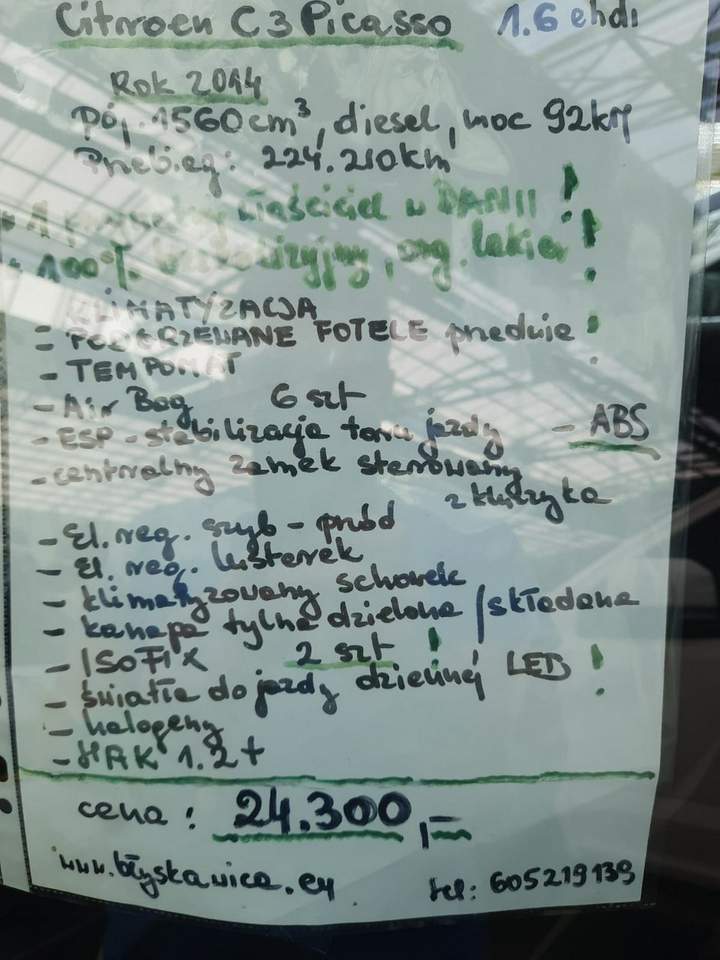 Citroen C3 Picasso 1.6 ehdi
Rok 2014
Poj. 1560cm³, diesel, moc 92kM
Przebieg: 224.210km
1 właściciel w DANII!
100% bezwizyjny, org. lakier!
KLIMATYZACJA
- PODGRZEWANE FOTELE przednie!
- TEMPOMAT
- Air Bag 6 szt
- ESP - stabilizacja toru jazdy - ABS
- centralny zamek sterowany
z kluczyka
- El. reg. szyb - przód
- El. reg. lusterek
- klimatyzowany schowek
- kanapa tylna dzielona / składana
- ISOFIX 2 szt!
- światła do jazdy dziennej LED!
- halogeny
- HAK 1.2t
cena: 24.300,-
www.błyskawica.eu tel: 605219139